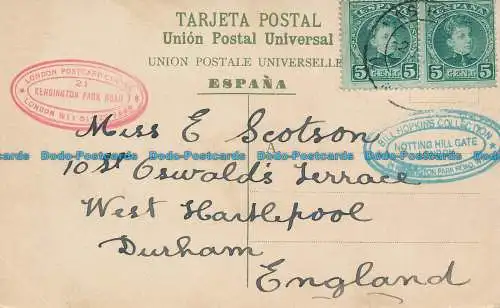 TARJETA POSTAL
Unión Postal Universal
UNION POSTALE UNIVERSELLE
ESPAÑA
5 CENT. 5 5 CENT. 5
LONDON POSTCARD
21
KENSINGTON PARK ROAD
LONDON W11
BILL HOPKINS COLLECTION
NOTTING HILL GATE
LONDON
KENSINGTON PARK ROAD
A
Miss E Scotson
10 St Oswald's Terrace
West Hartlepool
Durham
England
Dodo-Postcards Dodo-Postcards Dodo-Postcards Dodo-Postcards